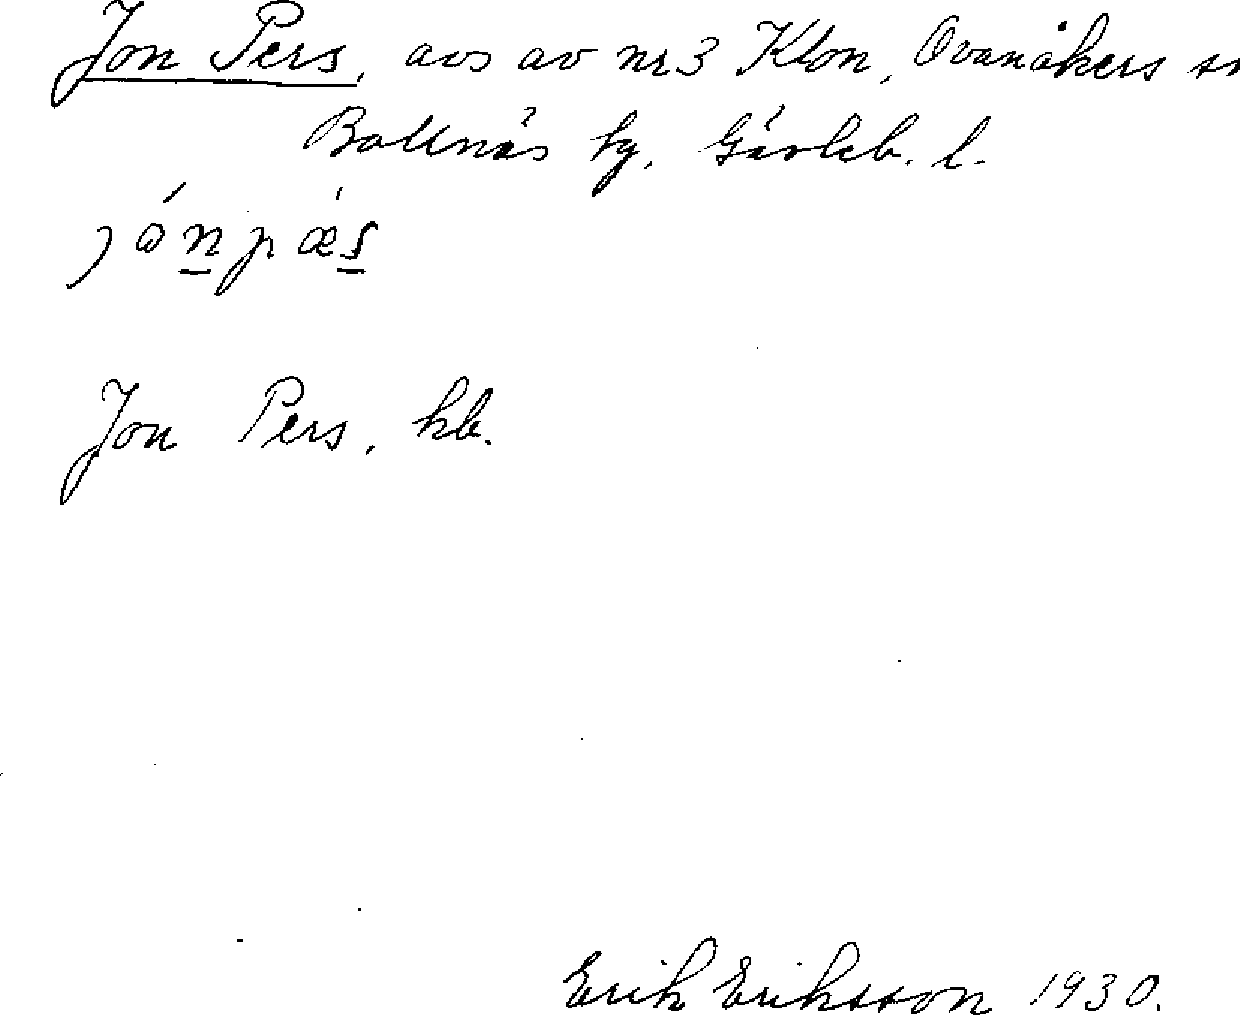 Jon Pers, avs av nr 3 Klon, Ovanåkers sn
Bollnäs tg, Gävleb. l.
jɷ́n̲pǽs̲
Jon Pers, kb.
Erik Eriksson 1930.